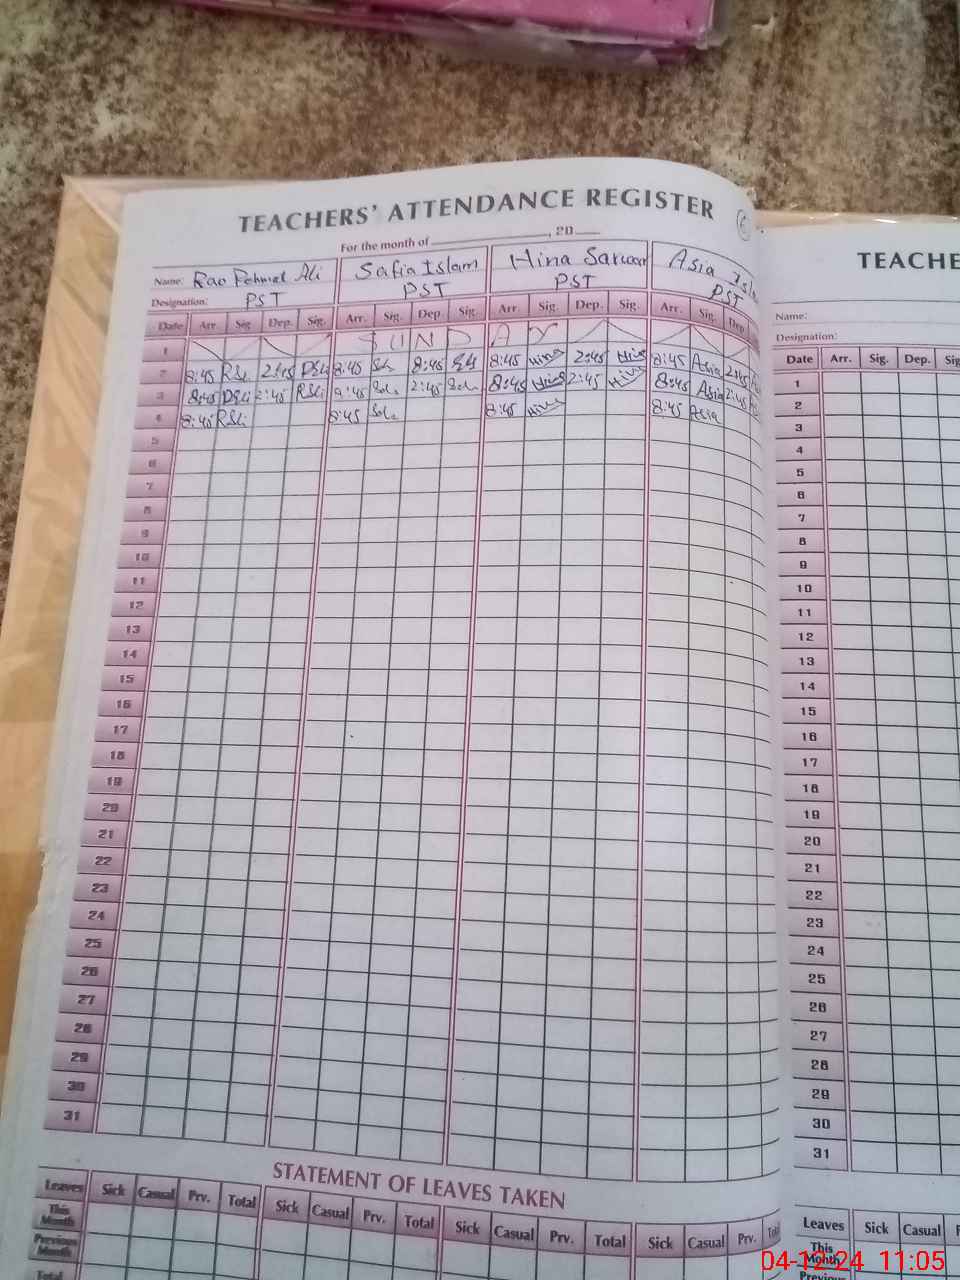 TEACHERS' ATTENDANCE REGISTER
For the month of , 20
Name: Rao Rehmat Ali Safia Islam Hina Sarwar Asia
Designation: PST PST PST PST
Date Arr. Sig. Dep. Sig. Arr. Sig. Dep. Sig. Arr. Sig. Dep. Sig. Arr. Sig. Dep.
1 SUNDAY
2 8:45 2:45 8:45 8:45 8:45 Hina 2:45 Hina 8:45 Asia 2:45
3 8:45 2:45 8:45 2:45 8:45 Hina 2:45 Hina 8:45 Asia 2:45
4 8:45 8:45 8:45 Hina 8:45 Asia
5
6
7
8
9
10
11
12
13
14
15
16
17
18
19
20
21
22
23
24
25
26
27
28
29
30
31
STATEMENT OF LEAVES TAKEN
Leaves Sick Casual Prv. Total Sick Casual Prv. Total Sick Casual Prv. Total Sick Casual Prv.
This Month
Previous Month
Total
TEACHE
Name:
Designation:
Date Arr. Sig. Dep. Sig
1
2
3
4
5
6
7
8
9
10
11
12
13
14
15
16
17
18
19
20
21
22
23
24
25
26
27
28
29
30
31
Leaves Sick Casual
This Month
Previous
04-12-24 11:05